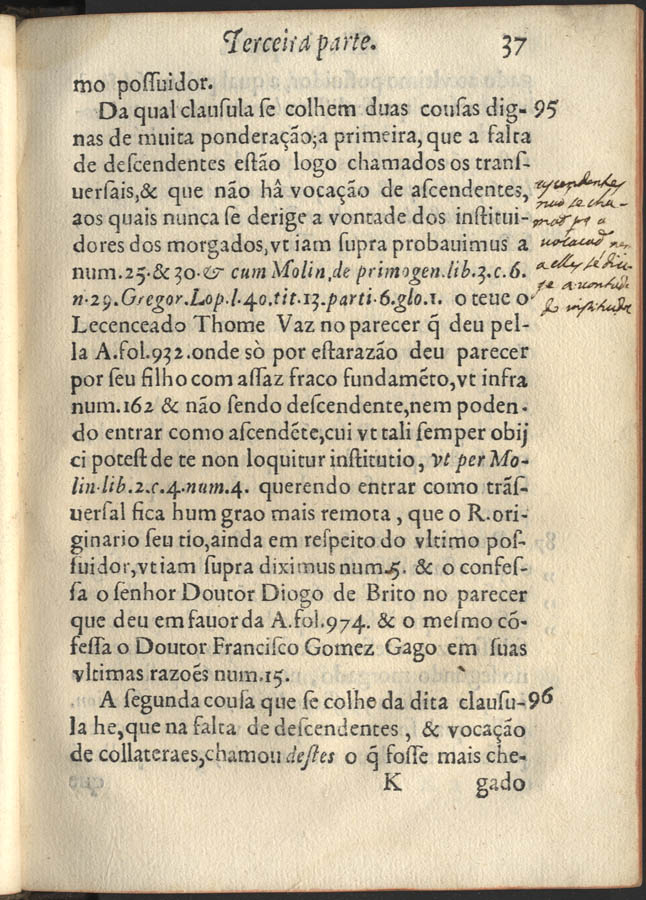 Terceira parte. 37
mo poſſuidor.
Da qual clauſula ſe colhem duas couſas dig- 95
nas de muita ponderação;a primeira, que a falta
de deſcendentes eſtão logo chamados os tranſ-
uerſais,& que não hâ vocação de aſcendentes,
aos quais nunca ſe derige a vontade dos inſtitui-
dores dos morgados,vt iam ſupra probauimus a
num.25.& 30.& cum Molin,de primogen.lib.3.c.6.
n.29.Gregor.Lop.l.40.tit.13.parti.6.glo.1. o teue o
Lecenceado Thome Vaz no parecer q̃ deu pel-
la A.fol.932.onde sò por eſtarazão deu parecer
por ſeu filho com aſſaz fraco fundamẽto,vt infra
num.162 & não ſendo deſcendente,nem poden-
do entrar como aſcendẽte,cui vt tali ſemper obij
ci poteſt de te non loquitur inſtitutio, vt per Mo-
lin.lib.2.c.4.num.4. querendo entrar como trãſ-
uerſal fica hum grao mais remota , que o R.ori-
ginario ſeu tio,ainda em reſpeito do vltimo poſ-
ſuidor,vt iam ſupra diximus num.5. & o confeſ-
ſa o ſenhor Doutor Diogo de Brito no parecer
que deu em fauor da A.fol.974. & o meſmo cõ-
feſſa o Doutor Franciſco Gomez Gago em ſuas
vltimas razoẽs num.15.
A ſegunda couſa que ſe colhe da dita clauſu- 96
la he,que na falta de deſcendentes , & vocação
de collateraes,chamou deſtes o q̃ foſſe mais che-
K gado
ascendentes
não se cha-
a
a elles se diri-
ge a vontade
do instituidor